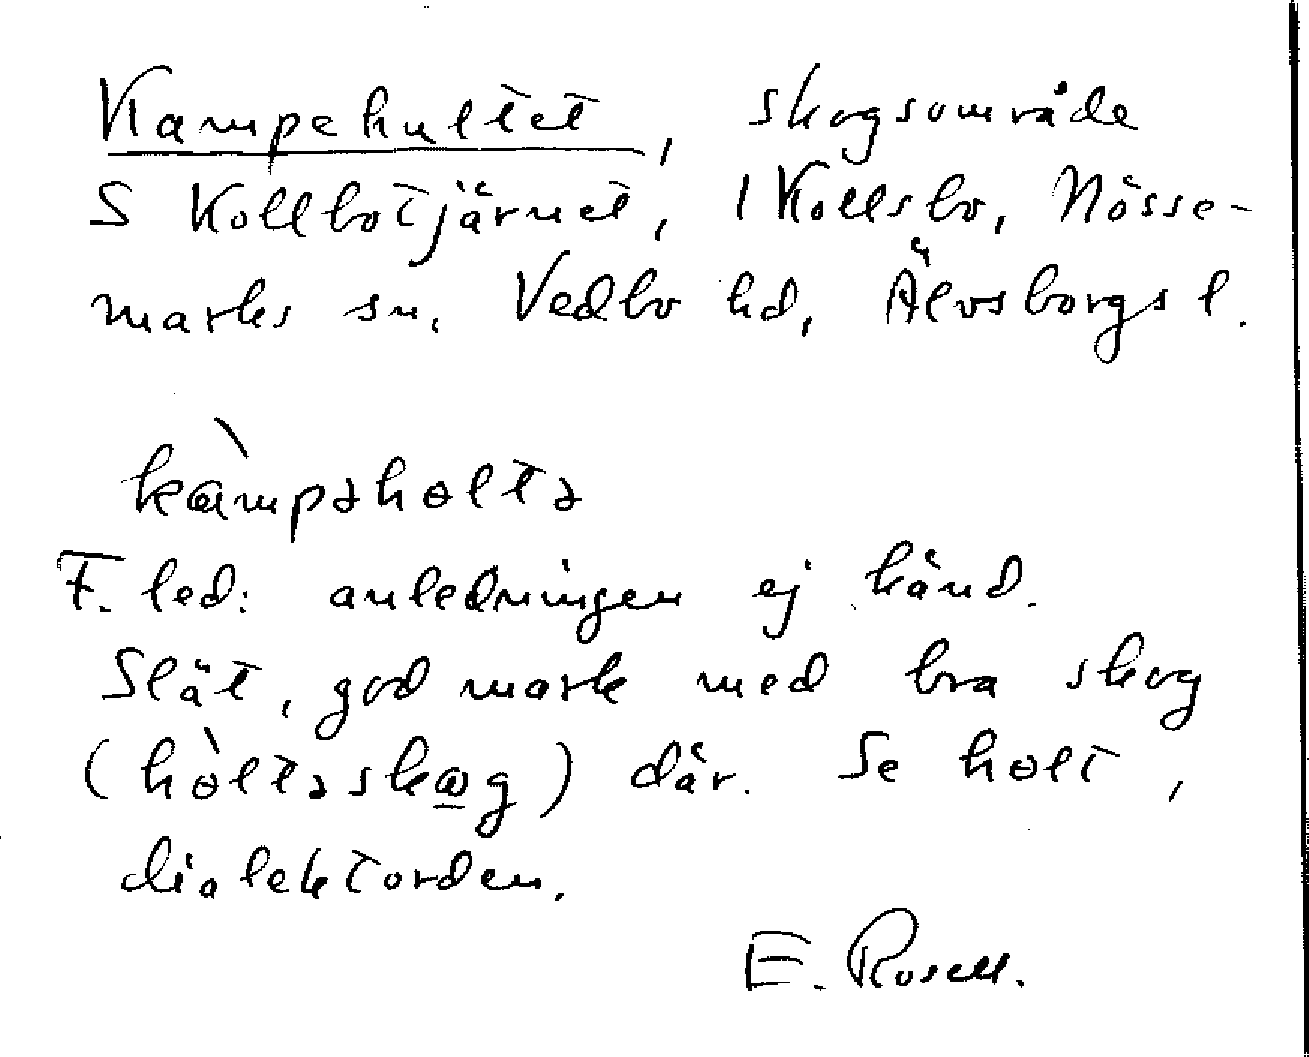 Kampehultet, skogsområde
S Kollbotjärnet, 1 Kollsbo, Nösse-
marks sn, Vedbo hd, Älvsborgs l.
kàmpəholtə
F. led: anledningen ej känd.
Slät, god mark med bra skog
(hòltəskωg) där. Se holt,
dialektorden.
E. Rosell.